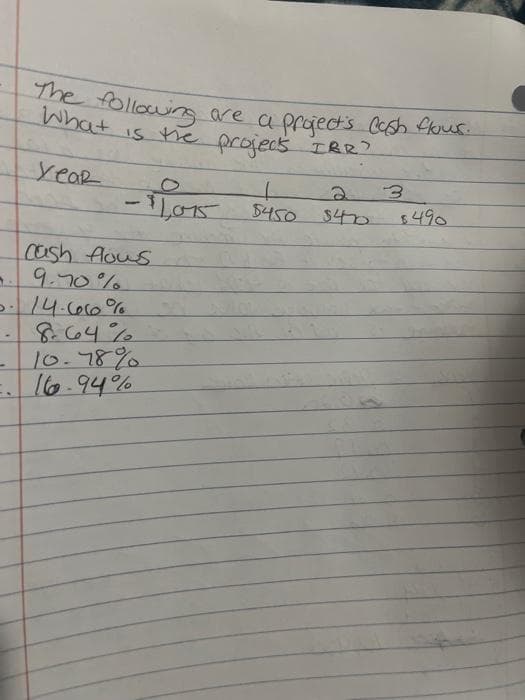 The following are a project's cash flows.
What is the projects IRR?
Year 0 1 2 3
-$1,075 $450 $470 $490
cash flows
9.70%
14.66%
8.64%
10.78%
16.94%